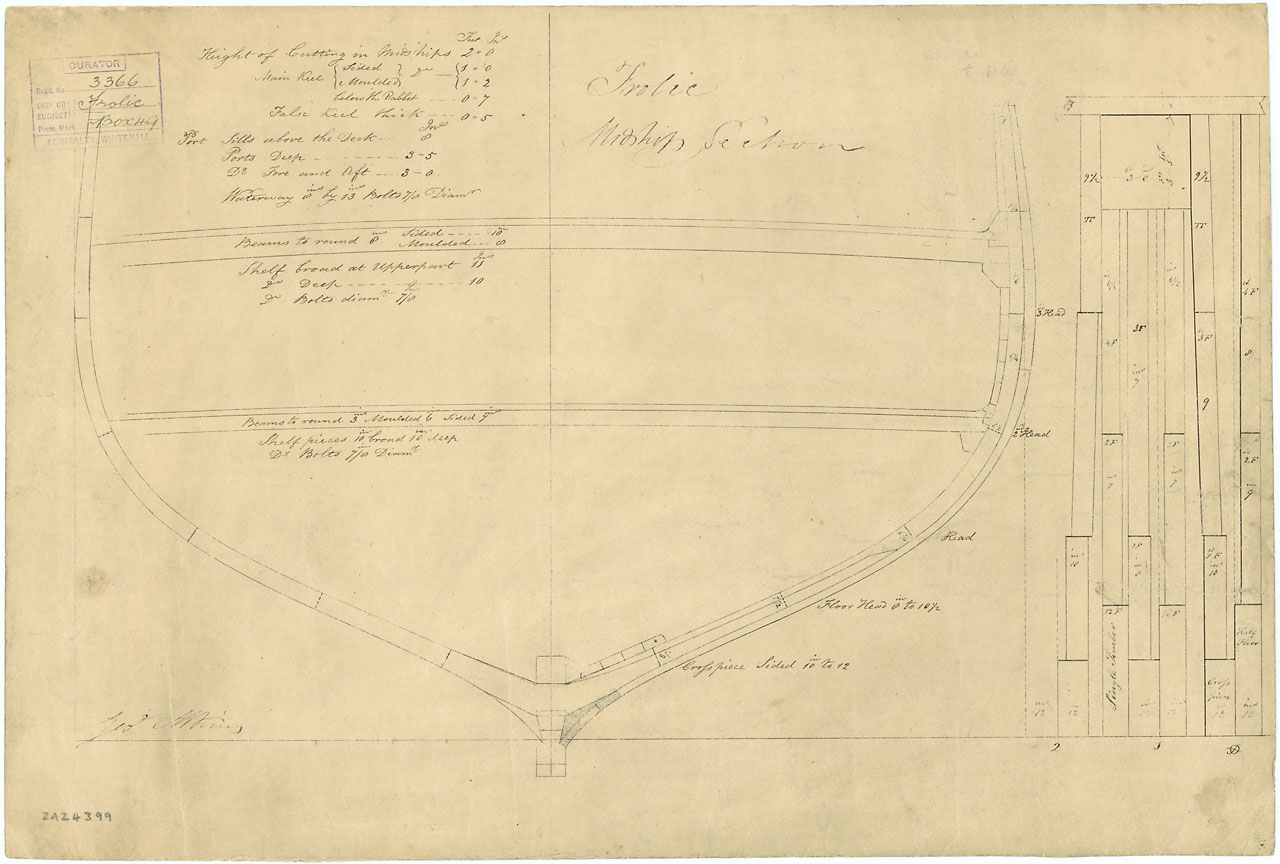 CURATOR
Regd. No. 3366
SHIP OR SUBJECT Frolic
Press Mark BOX 49
ADMIRALTY, WHITEHALL
Feet Ins
Height of Cutting in Midships 2 " 0
Main Keel { Sided } Do { 1 = 0
Moulded 1 = 2
below the Rabbet --- 0 - 7
False Keel thick --- 0 - 5
Ins
Port Sills above the Deck -- 8
Ports Deep --- 3 - 5
Do Fore and Aft -- 3 - 0
Waterway 8 by 13 Bolts 7/8 Diamr
Beams to round 8 ins Sided ---- 10
Moulded --- 8
Shelf broad at Upperpart 11
Do Deep ---- 10
Do Bolts diamr 7/8
Beams to round 3 ins Moulded 6 Sided 7
Shelf pieces 10 broad 10 deep
Do Bolts 7/8 Diamr
Frolic
Midship Section
3 Head
2 Head
Head
Floor Head 8 to 10 1/2
Crosspiece Sided 10 to 12
9 1/2
9 1/2
TT
TT
4F
3F
3F
9
4F
8
2F
2F
2F
9
1F
1F
10
10
Single Timber
Half Floor
Cross piece
12
12
12
12
2
1
ZAZ4399